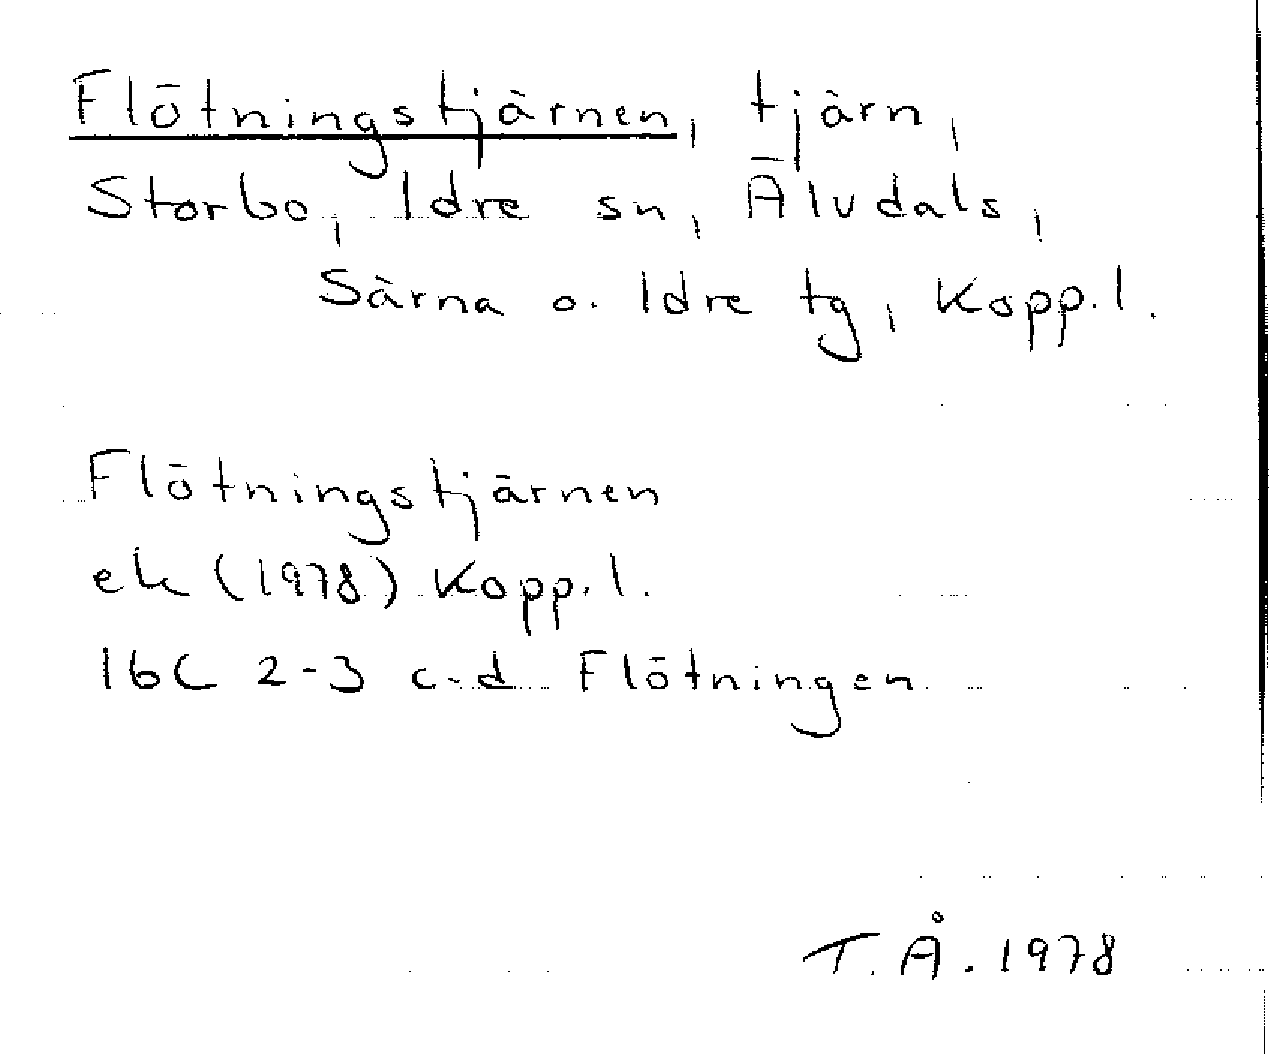 Flötningstjärnen, tjärn,
Storbo, Idre sn, Älvdals,
Särna o. Idre tg, Kopp.l.
Flötningstjärnen
ek (1978) Kopp.l.
16C 2-3 c-d Flötningen
T.Å. 1978